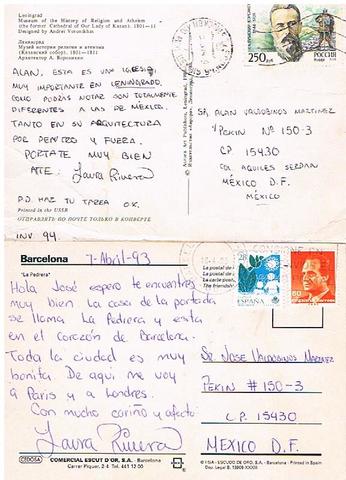 Leningrad
Museum of the History of Religion and Atheism
(the former Cathedral of Our Lady of Kazan). 1801—11
Designed by Andrei Voronikhin
Ленинград
Музей истории религии и атеизма
(Казанский собор). 1801—1811
Архитектор А. Воронихин
250 РУБ
РОССИЯ
ALAN, ESTA ES UNA IGLESIA
MUY IMPORTANTE EN LENINGRADO.
COMO PODRÁS NOTAR SON TOTALMENTE
DIFERENTES A LAS DE MÉXICO.
TANTO EN SU ARQUITECTURA
POR DENTRO Y FUERA.
PORTATE MUY BIEN
ATE. Laura Rivera
P.D HAZ TU TAREA OK.
SR. ALAN VALDOBINOS MARTINEZ
PEKIN Nº 150-3
CP 15430
COL AQUILES SERDAN
MÉXICO D.F.
MÉXICO
Printed in the USSR
ОТПРАВЛЯТЬ ПО ПОЧТЕ ТОЛЬКО В КОНВЕРТЕ
INV. 94.
Barcelona
7-Abril-93
"La Pedrera"
Hola José espero te encuentres
muy bien La casa de la portada
se llama La Pedrera y esta
en el corazón de Barcelona.
Toda la ciudad es muy
bonita. De aqui me voy
a París y a Londres.
Con mucho cariño y afecto
Laura Rivera
28
ESPAÑA
60
SR. JOSE VALDOBINOS MARTINEZ
PEKIN # 150-3
C.P. 15430
MÉXICO D.F.
CEDOSA
COMERCIAL ESCUT D'OR, S.A. - Barcelona
Carrer Piquer, 2-4 Tel. 441 12 00
© FISA - ESCUDO DE ORO, S.A. - Barcelona - Printed in Spain